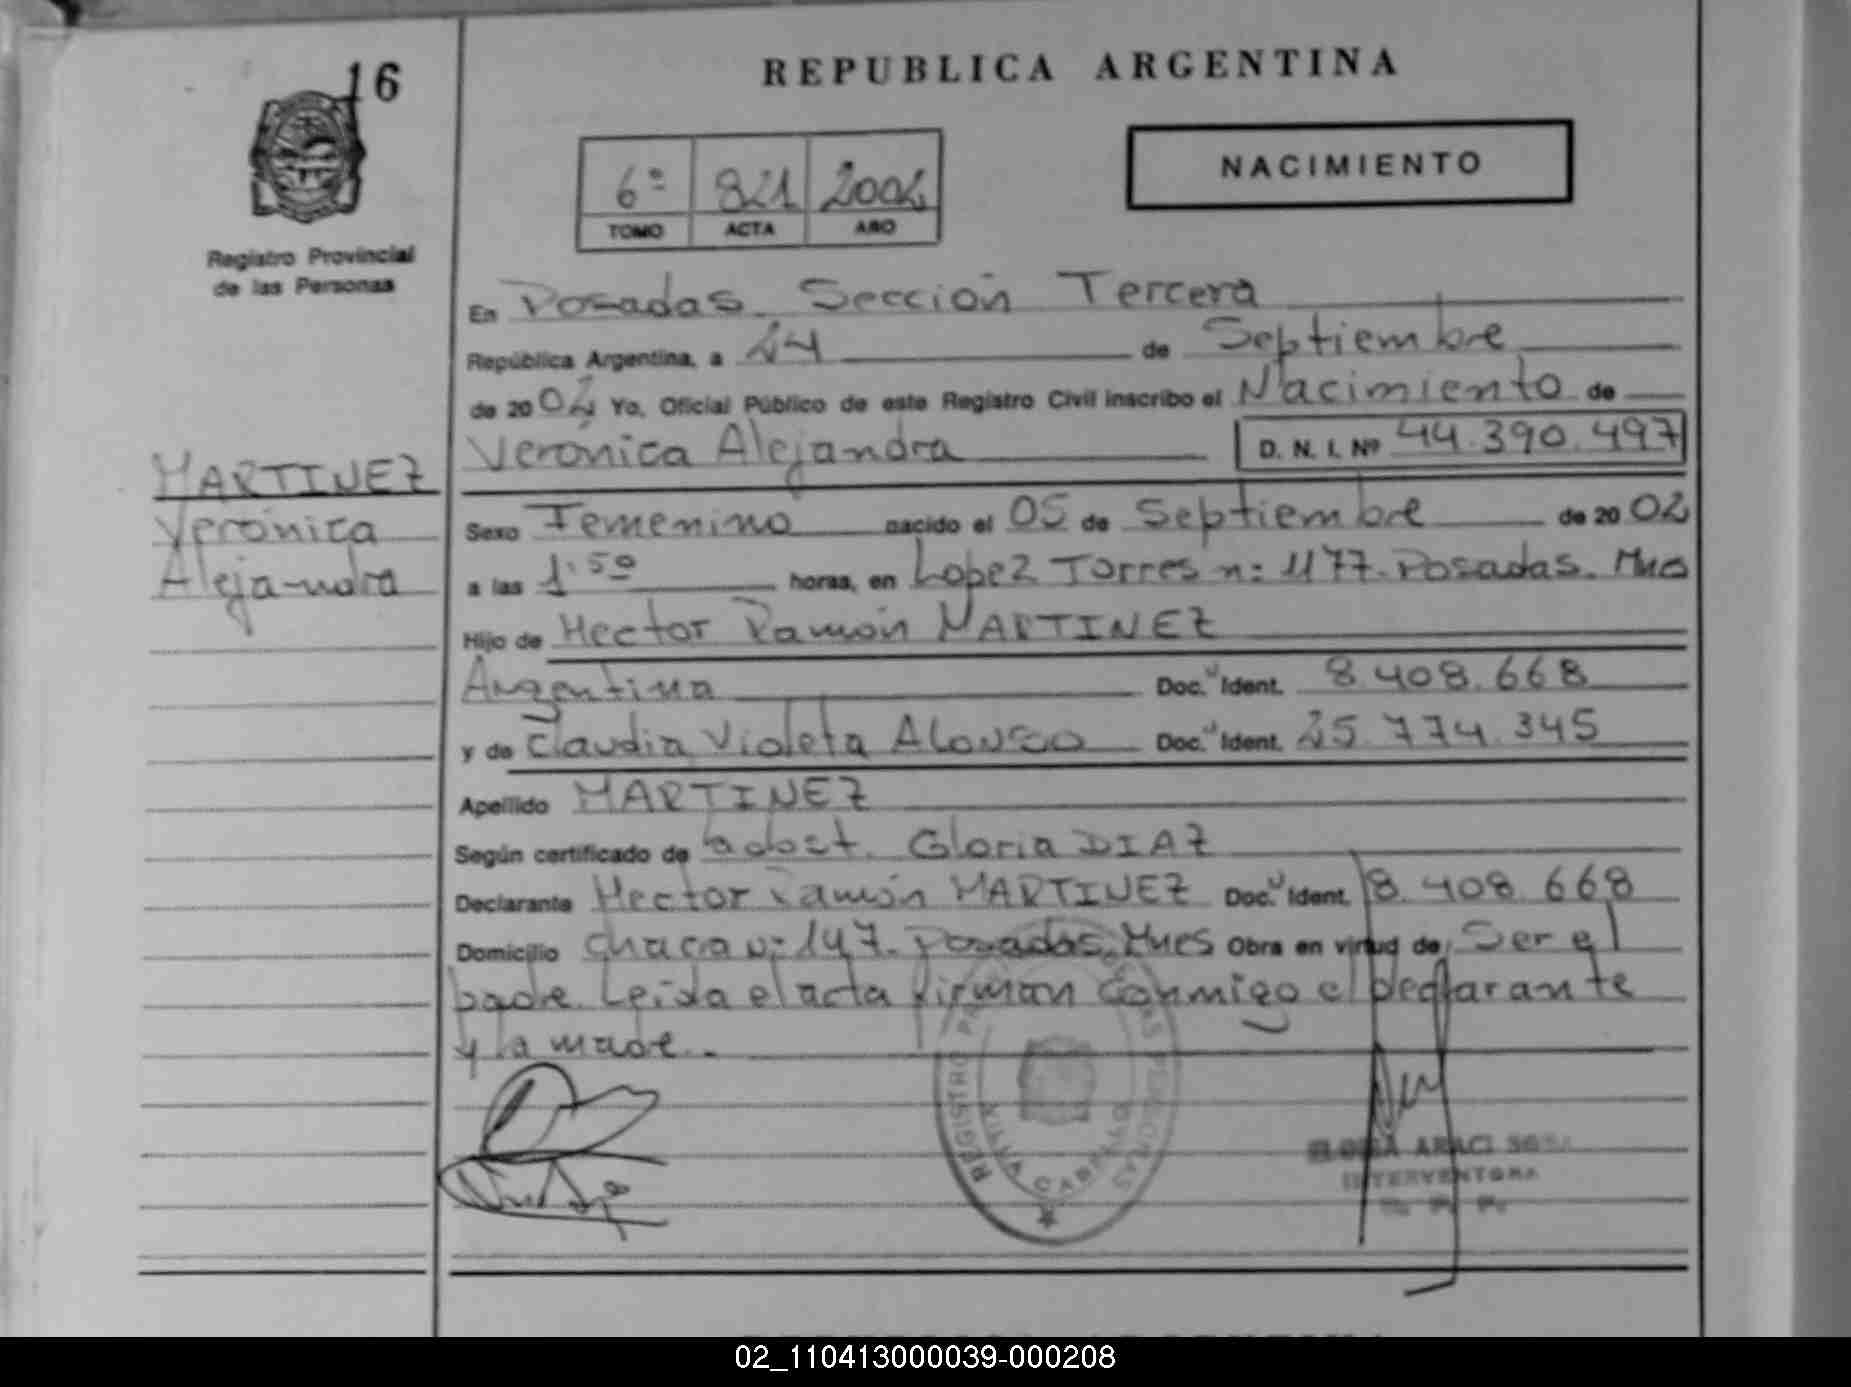 16
REPUBLICA ARGENTINA
NACIMIENTO
6º 821 2002
TOMO ACTA AÑO
Registro Provincial
de las Personas
En Posadas Sección Tercera
República Argentina, a 24 de Septiembre
de 2002 Yo, Oficial Público de este Registro Civil inscribo el Nacimiento de
Verónica Alejandra D. N. I. Nº 44.390.497
MARTINEZ
Verónica
Alejandra
Sexo Femenino nacido el 05 de Septiembre de 2002
a las 1:50 horas, en Lopez Torres n: 1177. Posadas. Mnes
Hijo de Hector Ramón MARTINEZ
Argentina Doc. Ident. 8.408.668
y de Claudia Violeta ALONSO Doc. Ident. 25.774.345
Apellido MARTINEZ
Según certificado de Gloria DIAZ
Declarante Hector Ramón MARTINEZ Doc. Ident. 8.408.668
Domicilio chacra n: 147. Posadas. Mnes Obra en virtud de Ser el
padre. Leida el acta firman conmigo el declarante
y la madre.-
REGISTRO PERSONAS
VILLA CABELLO
ARACI SOSA
INTERVENTORA
R. P. P.
02_110413000039-000208